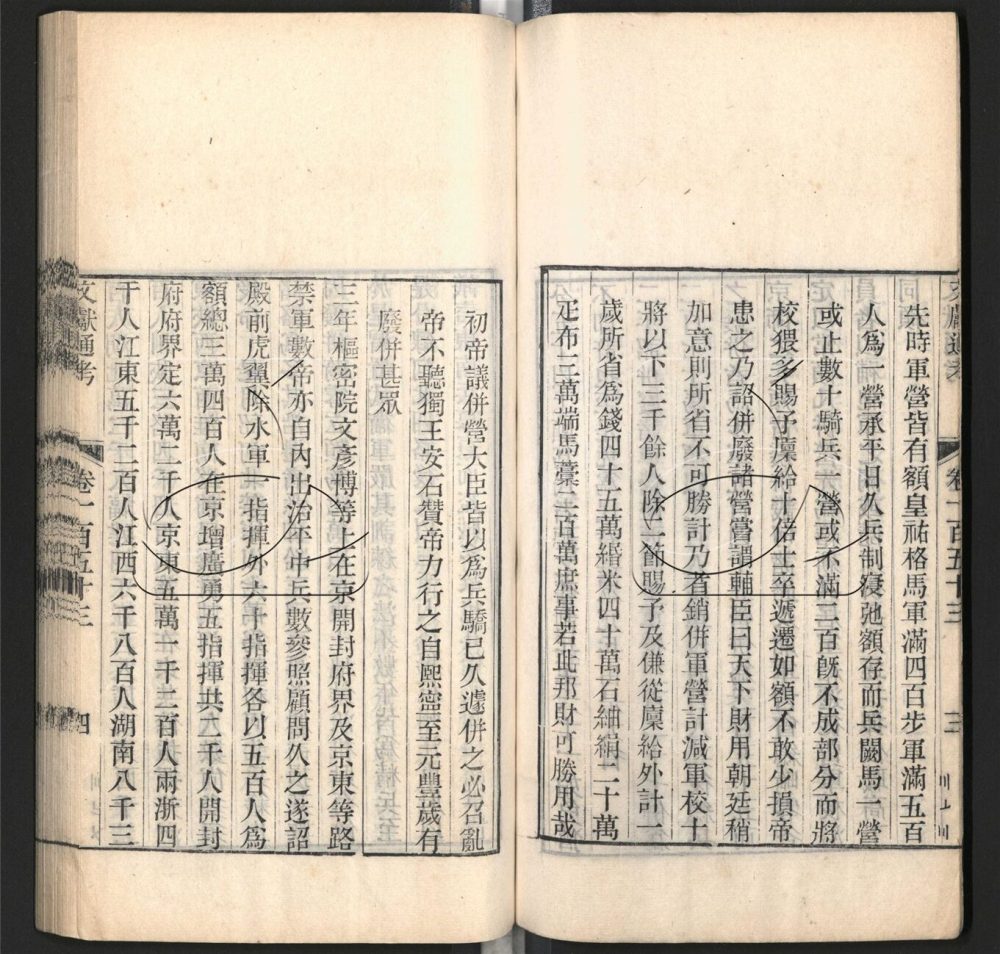 先時軍營皆有額皇祐格馬軍滿四百步軍滿五百
人為一營承平日久兵制寖弛額存而兵闕馬一營
或止數十騎兵一營或不滿二百旣不成部分而將
校猥多賜予廩給十倍士卒遞遷如額不敢少損帝
患之乃詔併廢諸營嘗謂輔臣曰天下財用朝廷稍
加意則所省不可勝計乃者銷併軍營計減軍校十
將以下三千餘人除二節賜予及傔從廩給外計一
歲所省為錢四十五萬緡米四十萬石紬絹二十萬
疋布三萬端馬藁二百萬庶事若此邦財可勝用哉
文獻通考 卷一百五十三 三
初帝議併營大臣皆以為兵驕已久遽併之必召亂
帝不聽獨王安石贊帝力行之自熙寧至元豐歲有
廢併甚眾
三年樞密院文彥博等上在京開封府界及京東等路
禁軍數帝亦自內出治平中兵數參照顧問久之遂詔
殿前虎翼除水軍一指揮外六十指揮各以五百人為
額總三萬四百人在京增廣勇五指揮共二千人開封
府府界定六萬二千人京東五萬一千二百人兩浙四
千人江東五千二百人江西六千八百人湖南八千三
文獻通考 卷一百五十三 四